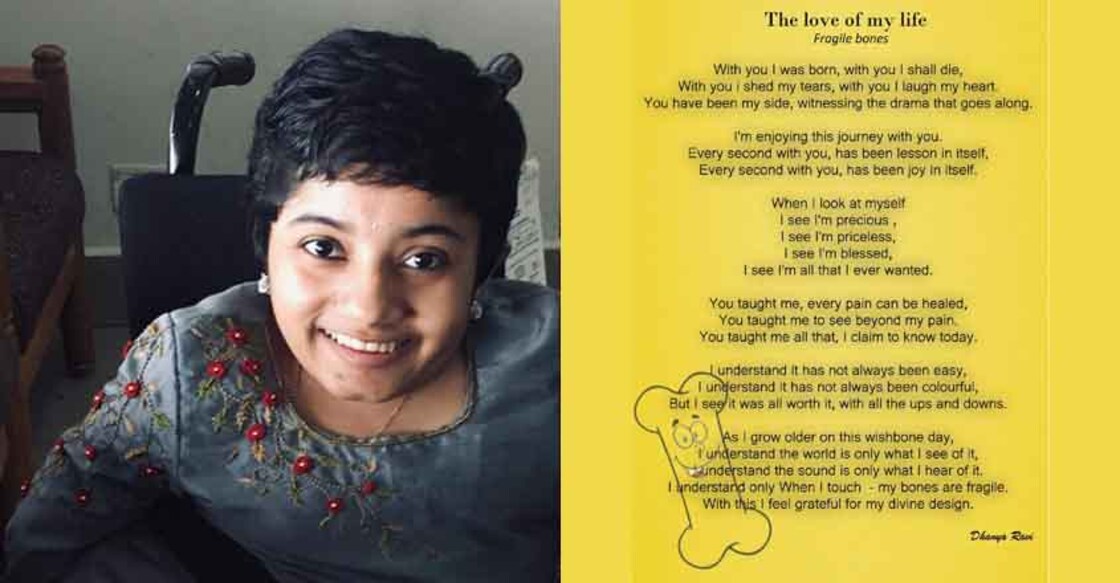 The love of my life
Fragile bones
With you I was born, with you I shall die,
With you i shed my tears, with you I laugh my heart.
You have been my side, witnessing the drama that goes along.
I'm enjoying this journey with you.
Every second with you, has been lesson in itself,
Every second with you, has been joy in itself.
When I look at myself
I see I'm precious ,
I see I'm priceless,
I see I'm blessed,
I see I'm all that I ever wanted.
You taught me, every pain can be healed,
You taught me to see beyond my pain.
You taught me all that, I claim to know today.
I understand it has not always been easy,
I understand it has not always been colourful,
But I see it was all worth it, with all the ups and downs.
As I grow older on this wishbone day,
I understand the world is only what I see of it,
I understand the sound is only what I hear of it.
I understand only When I touch - my bones are fragile.
With this I feel grateful for my divine design.
Dhanya Ravi